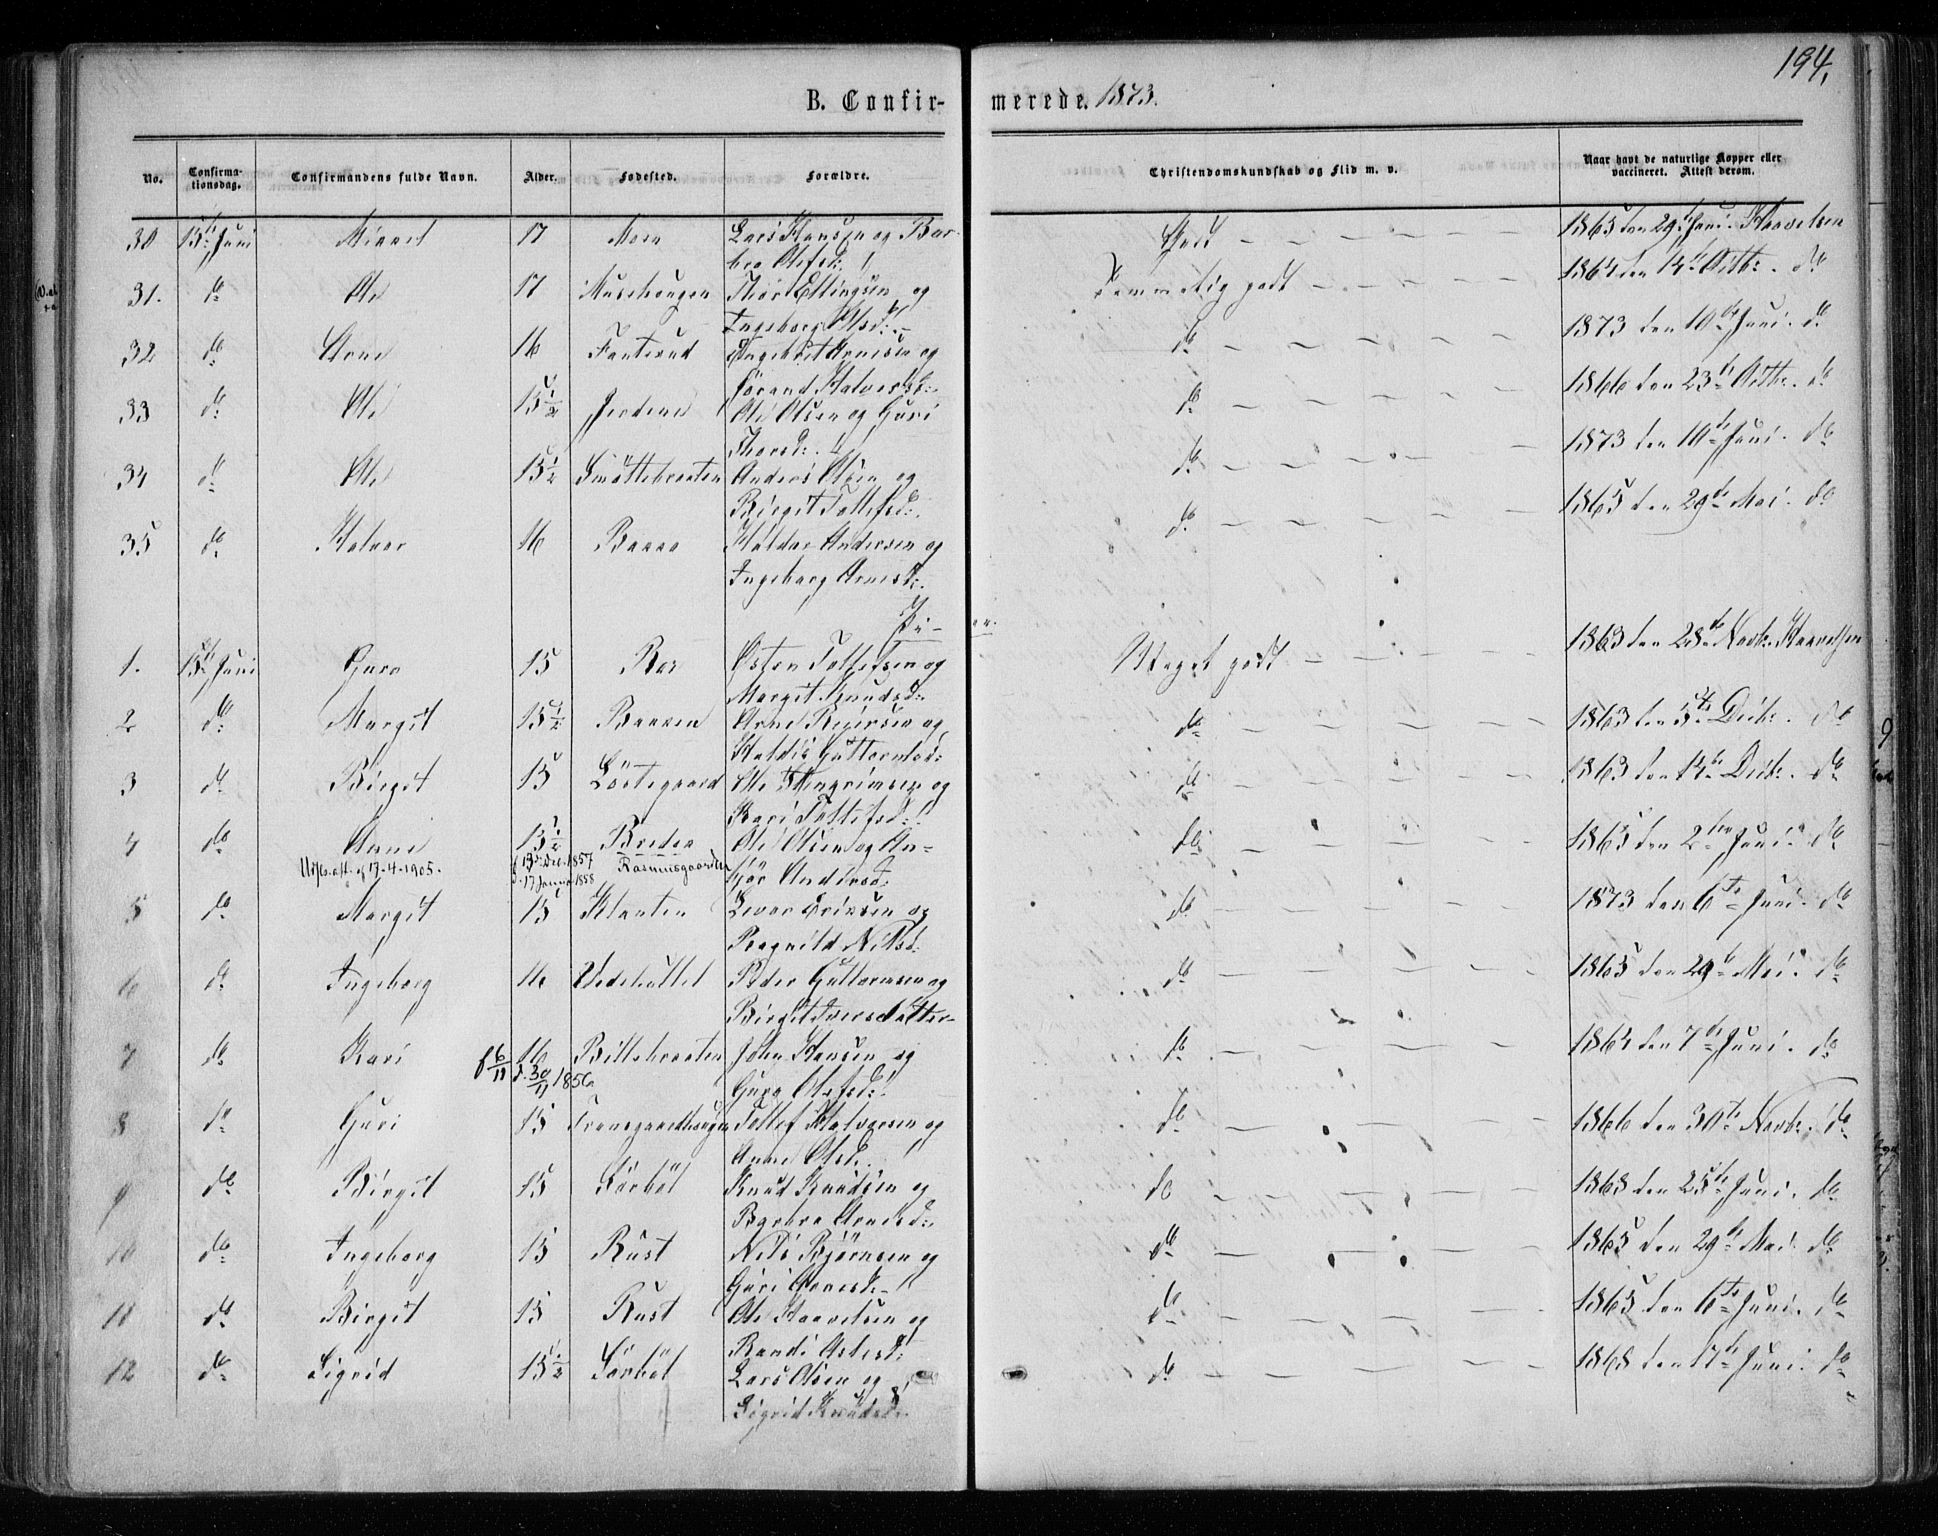 194.
B. Confirmerede. 1873.
No. Confirmationsdag. Confirmandens fulde Navn. Alder. Fødested. Forældre. Christendomskundskab og Flid m. v. Naar havt de naturlige Kopper eller vaccineret. Attest derom.
30 15de Juni 17 Moen Lars Hansen og Bar- Godt 1865 den 29de Juni. Haavelsen
bro Olsd:
31. do Ole 17 Thor Ellingsen og Temmelig godt 1864 den 14de Octbr. do
Ingeborg Olsd:
32 do Arne 16 Fonterud Engebret Arnesen og do 1873 den 10de Juni. do
Jørand Halvorsd:
33 do Ole 15½ Ole Olsen og Guri do 1866 den 23de Octbr. do
Thorsd:
34 do Ole 15½ Smøttebraaten Anders Olsen og do 1873 den 10de Juni. do
Birgit Tollefsd:
35 do Halvor 16 Haldor Andersen og do 1865 den 29de Mai. do
Ingeborg Arnesd:
Pi-
1. 15de Juni Guro 15 Østen Tollefsen og Meget godt 1863 den 28de Novbr. Haavelsen
Margit Knudsd:
2 do Margit 15½ Arne Reiersen og do 1863 den 5te Decbr. do
Haldis Guttormsd:
3 do Birgit 15 Løstegaard Ole Hengrimsen og do 1863 den 14de Decbr. do
Kari Tollefsd:
4 do Anne 15½ Breden Ole Olsen og An- do 1865 den 2den Juni do
Utfl. att. 17-4-1905. f. 13 Dec. 1857 d. 17 Januar 1858 Rasmusgaarden
bjør Andersd:
5 do Margit 15 Klanten Levor Eriksen og do 1873 den 6te Juni. do
Ragnild Nilsd:
6 do Ingeborg 16 Peder Guttormsen og do 1865 den 29de Mai. do
Birgit Iversdatter
7 do Kari 16 Billebraaten John Hansen og do 1864 den 7de Juni. do
f 6/11 d. 30/11 1856
Guro Olsd:
8 do Guri 15 Tollef Halvorsen og do 1866 den 30te Novbr. do
Anne Olsd:
9 do Birgit 15 Sørbøl Knud Knudsen og do 1868 den 25de Juni. do
Barbro Arnesd:
10 do Ingeborg 15 Rust Nils Bjørnsen og do 1865 den 29de Mai. do
Guri
11 do Birgit 15 Rust Ole Haavelsen og do 1865 den 6te Juni. do
Randi Aslesd:
12 do Sigrid 15½ Sørbøl Lars Olsen og do 1868 den 17de Juni. do
Sigrid Knudsd: